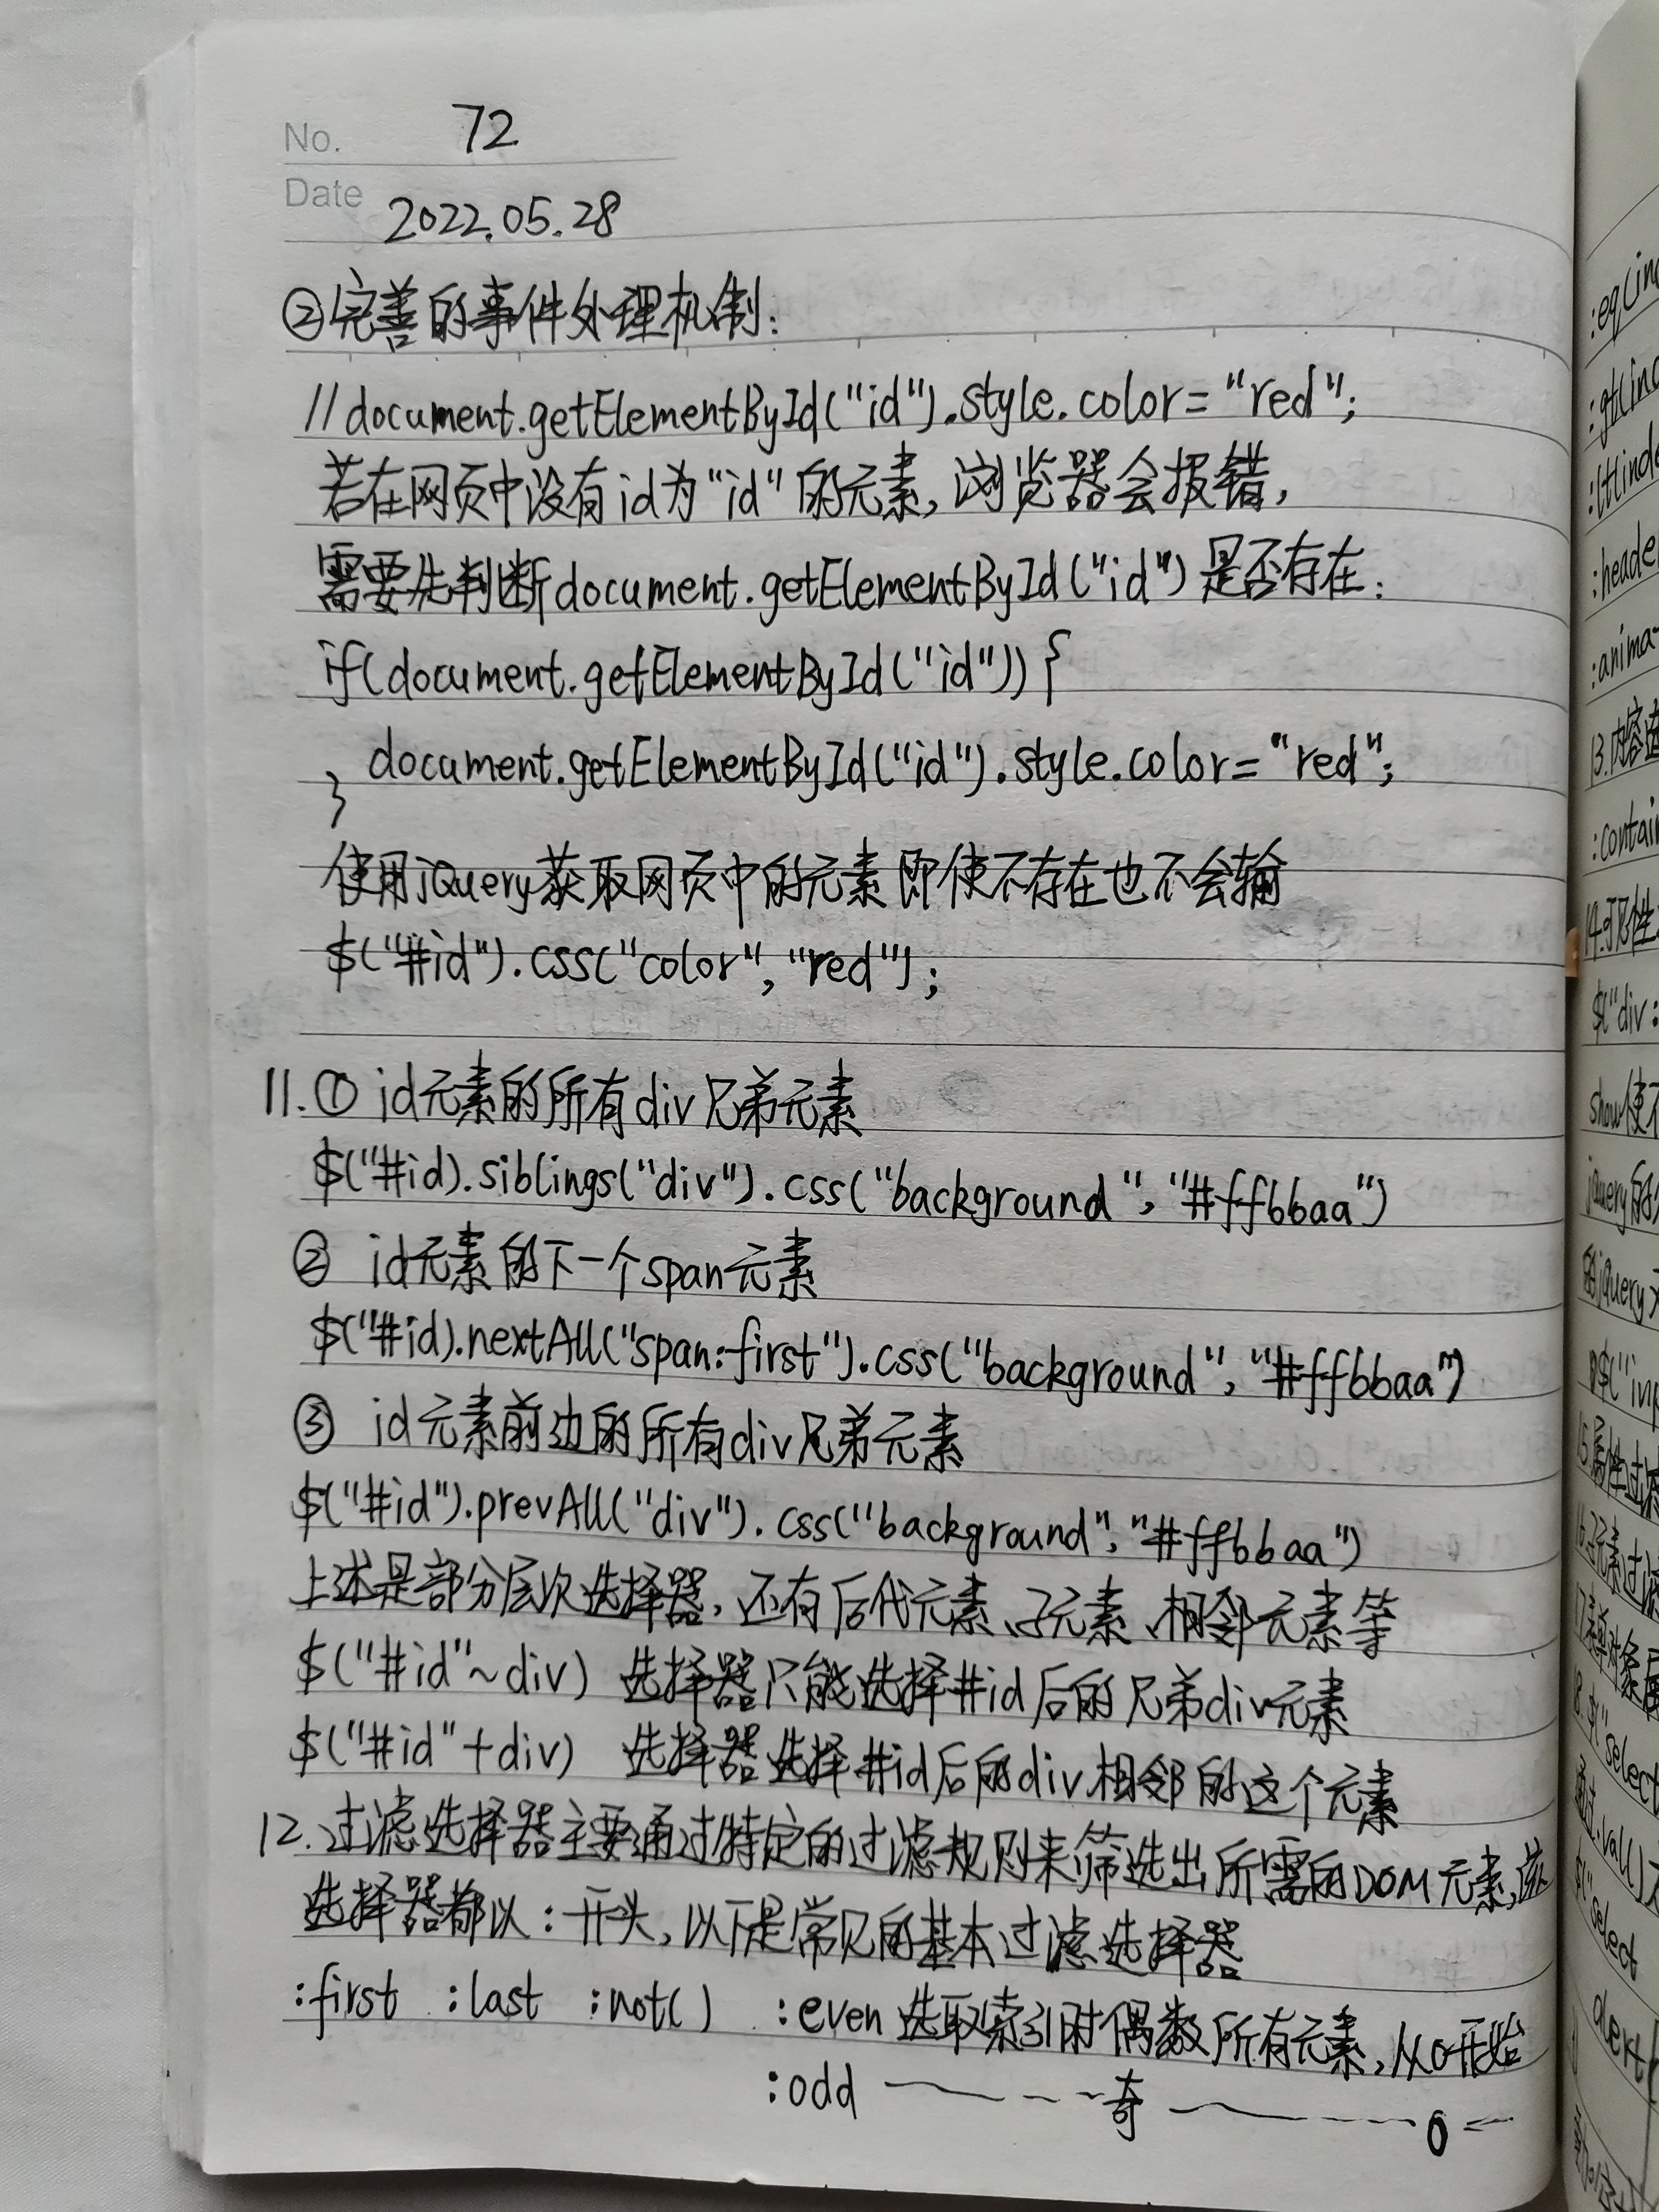 No. 72
Date 2022.05.28
②完善的事件处理机制:
//document.getElementById("id").style.color="red";
若在网页中没有id为"id"的元素,浏览器会报错,
需要先判断document.getElementById("id")是否存在:
if(document.getElementById("id")){
document.getElementById("id").style.color="red";
}
使用jQuery获取网页中的元素即使不存在也不会输
$("#id").css("color","red");
11.① id元素的所有div兄弟元素
$("#id).siblings("div").css("background","#ffbbaa")
② id元素的下一个span元素
$("#id).nextAll("span:first").css("background","#ffbbaa")
③ id元素前边的所有div兄弟元素
$("#id").prevAll("div").css("background","#ffbbaa")
上述是部分层次选择器,还有后代元素、子元素、相邻元素等
$("#id"~div) 选择器只能选择#id后的兄弟div元素
$("#id"+div) 选择器选择#id后的div相邻的这个元素
12.过滤选择器主要通过特定的过滤规则来筛选出所需的DOM元素,该
选择器都以:开头,以下是常见的基本过滤选择器
:first :last :not() :even 选取索引时偶数所有元素,从0开始
:odd 奇 0
:eq(in
:gt(ind
:lt(inde
:heade
:anima
13.内容
:contai
14.可见性
$("div:
show使不
jQuery的
的jQuery
$("inp
15.属性过滤
过滤
8. $("select
.val()
$("select
alert(